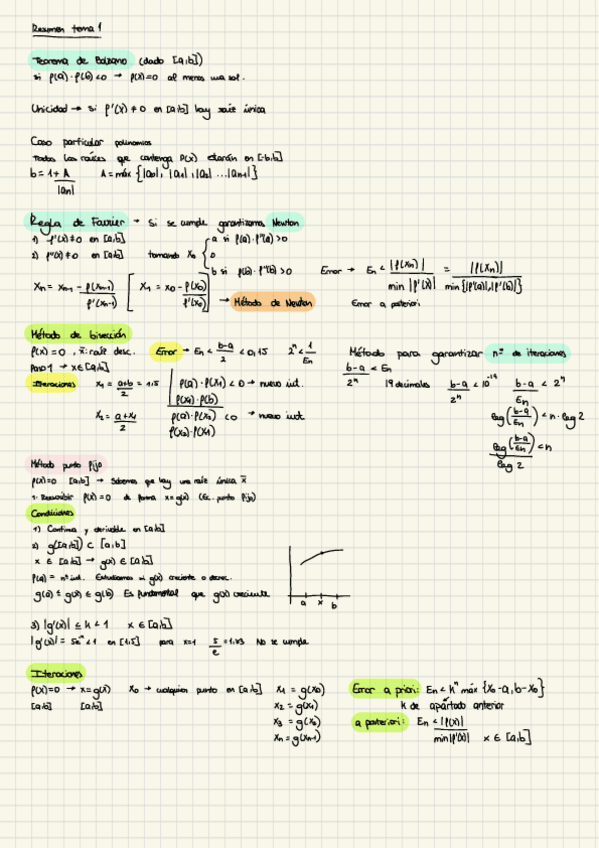 Resumen tema 1
Teorema de Bolzano (dado [a,b])
si p(a)·p(b)<0 → p(x)=0 al menos una sol.
Unicidad → si p'(x)≠0 en [a,b] hay raíz única
Caso particular polinomios
Todas las raíces que contenga P(x) estarán en [-b,b]
b = 1 + A/|an| A = máx {|a0|, |a1|, |a2| ... |an-1|}
Regla de Fourier → Si se cumple garantizamos Newton
1) p'(x)≠0 en [a,b]
2) p''(x)≠0 en [a,b] tomando x0 { a si p(a)·p''(a)>0
o
b si p(b)·p''(b)>0
Error → En < |p(xn)| / min |p'(x)| = |p(xn)| / min{|p'(a)|,|p'(b)|}
xn = xn-1 - p(xn-1)/p'(xn-1) [x1 = x0 - p(x0)/p'(x0)] → Método de Newton
Error a posteriori
Método de bisección
p(x) = 0 , x̄: raíz desc.
Paso 1 → x∈[a,b]
Error → En < b-a/2 < 0,15 2ⁿ < 1/En
Iteraciones x1 = a+b/2 = 1.5 p(a)·p(x1) < 0 → nuevo int.
p(x1)·p(b)
x2 = a+x1/2 p(a)·p(x2) < 0 → nuevo int
p(x2)·p(x1)
Método para garantizar nº de iteraciones
b-a/2ⁿ < En
19 decimales b-a/2ⁿ < 10⁻¹⁹ b-a/En < 2ⁿ
log(b-a/En) < n·log 2
log(b-a/En)/log 2 < n
Método punto fijo
p(x)=0 [a,b] → Sabemos que hay una raíz única x̄
1. Reescribir p(x) = 0 de forma x = g(x) (Ec. punto fijo)
Condiciones
1) Continua y derivable en [a,b]
2) g([a,b]) ⊂ [a,b]
x ∈ [a,b] → g(x) ∈ [a,b]
p(a) = nº int. Estudiamos si g(x) creciente o decrec.
g(a) ≤ g(x) ≤ g(b) Es fundamental que g(x) creciente
a x b
3) |g'(x)| ≤ k < 1 x ∈ [a,b]
|g'(x)| = 5e⁻ˣ < 1 en [1,5] para x=1 5/e = 1.83 No se cumple
Iteraciones
p(x)=0 → x = g(x) x0 → cualquier punto en [a,b] x1 = g(x0)
[a,b] [a,b] x2 = g(x1)
x3 = g(x2)
xn = g(xn-1)
Error a priori: En < kⁿ máx {x0-a, b-x0}
k de apartado anterior
a posteriori: En < |p(x)| / min|p'(x)| x ∈ [a,b]